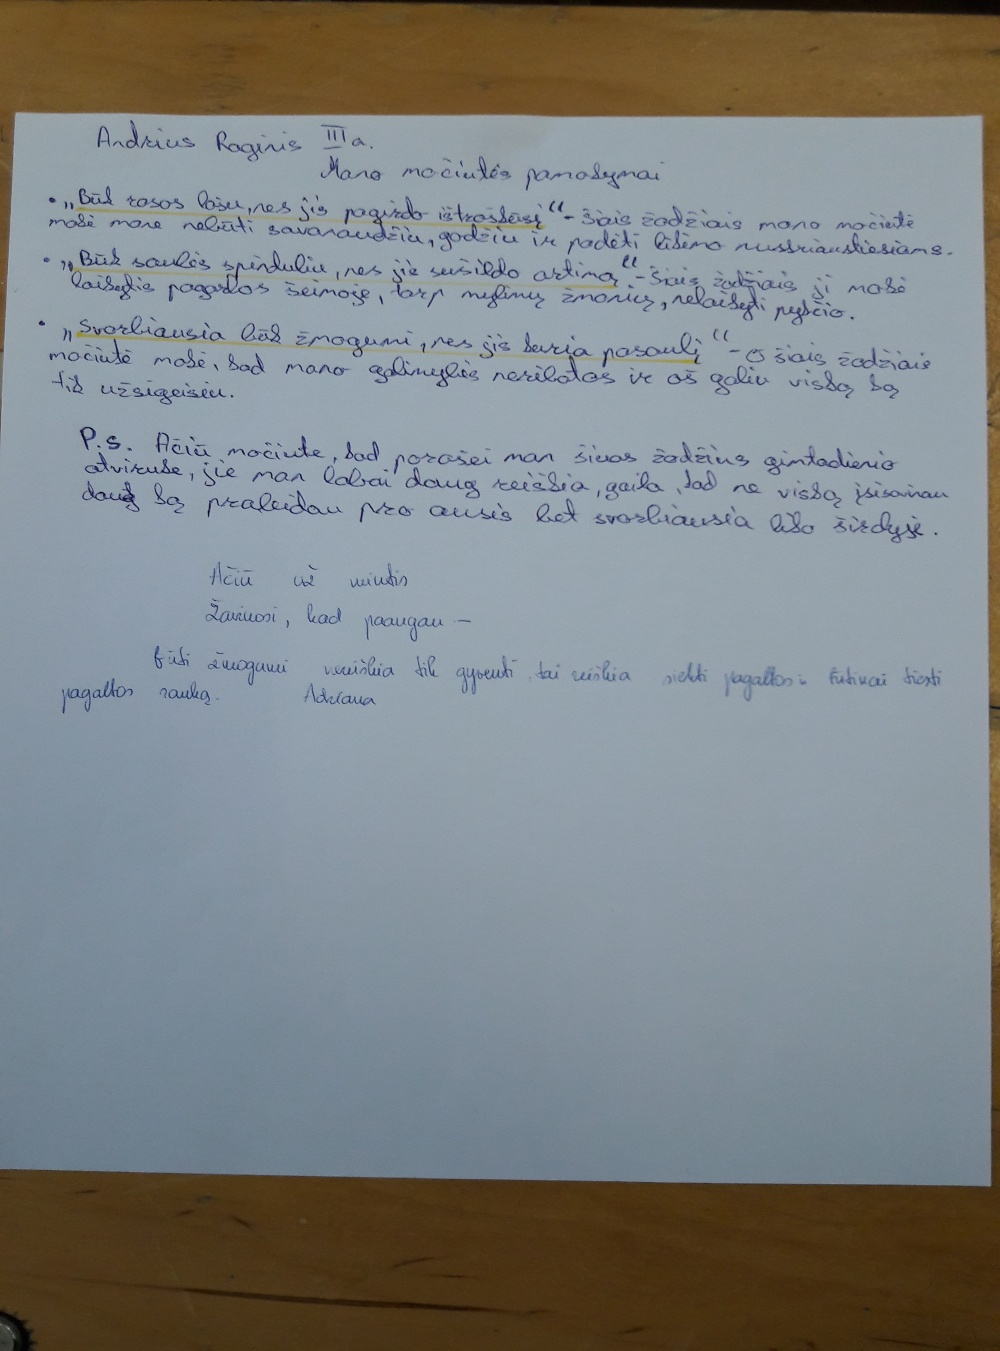 Andrius Raginis III a.
Mano močiutės pamokymai
• „Būk rasos lašu, nes jis pagirdo ištroškusį“ - šiais žodžiais mano močiutė
mokė mane nebūti savanaudžiu, godžiu ir padėti likimo nuskriaustiesiams.
• „Būk saulės spinduliu, nes jie sušildo artimą“ - šiais žodžiais ji mokė
laikytis pagarbos šeimoje, tarp mylimų žmonių, nelaikyti pykčio.
• „Svarbiausia būk žmogumi, nes jis kuria pasaulį“ - o šiais žodžiais
močiutė mokė, kad mano galimybės neribotos ir aš galiu viską ką
tik užsigeisiu.
P.s. Ačiū močiute, kad parašei man šiuos žodžius gimtadienio
atviruke, jie man labai daug reiškia, gaila, kad ne viską įsisavinau
daug ką praleidau pro ausis bet svarbiausia liko širdyje.
Ačiū už mintis
Žaviuosi, kad paaugau —
Būti žmogumi nereiškia tik gyventi, tai reiškia siekti pagalbos ir tiesti
pagalbos ranką. Adriana